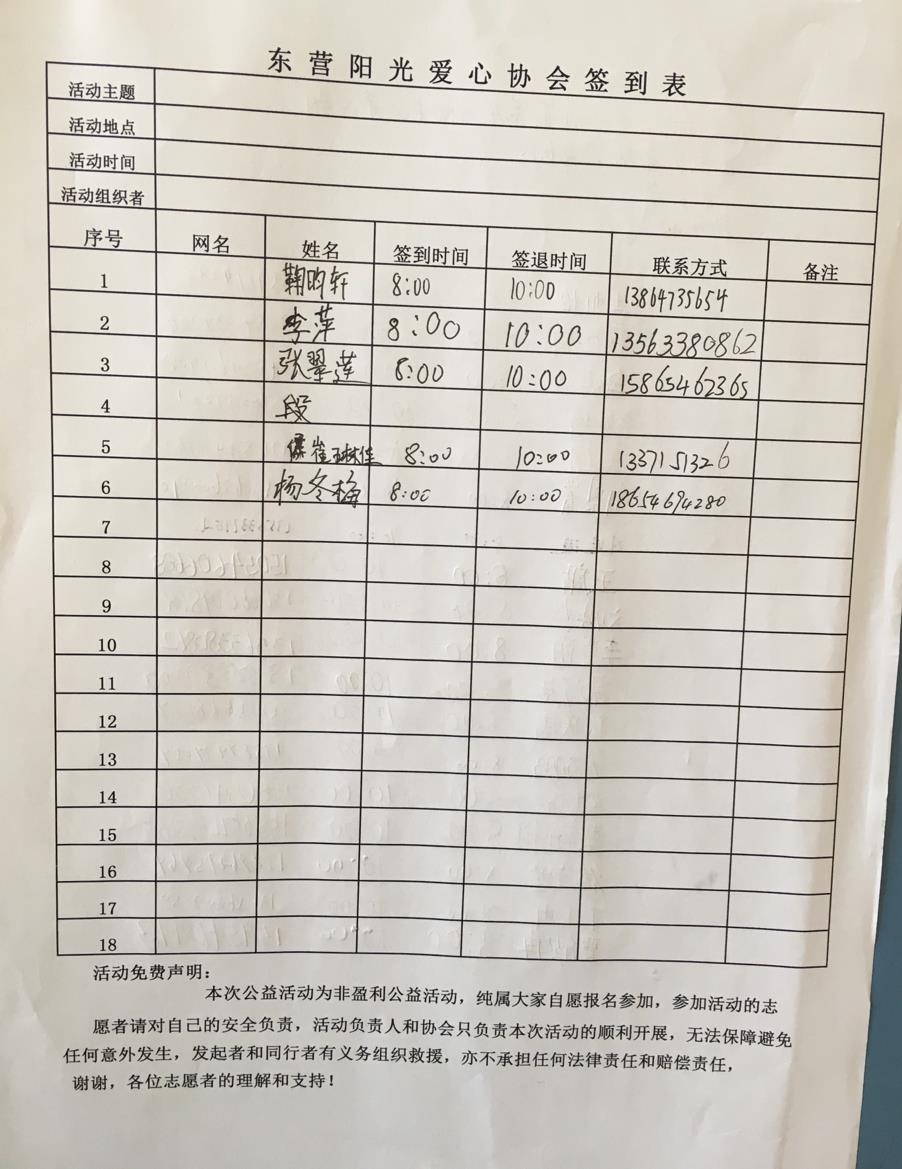 东营阳光爱心协会签到表
活动主题
活动地点
活动时间
活动组织者
序号 网名 姓名 签到时间 签退时间 联系方式 备注
1 鞠昀轩 8:00 10:00 13864735654
2 李萍 8:00 10:00 13563380862
3 张翠莲 8:00 10:00 15865462365
4 段
5 崔琳佳 8:00 10:00 1337151326
6 杨冬梅 8:00 10:00 18654694280
7
8
9
10
11
12
13
14
15
16
17
18
活动免费声明：
本次公益活动为非盈利公益活动，纯属大家自愿报名参加，参加活动的志
愿者请对自己的安全负责，活动负责人和协会只负责本次活动的顺利开展，无法保障避免
任何意外发生，发起者和同行者有义务组织救援，亦不承担任何法律责任和赔偿责任，
谢谢，各位志愿者的理解和支持！